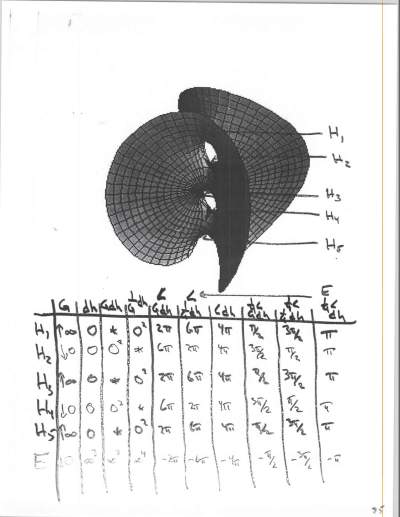 H₁
H₂
H₃
H₄
H₅
E
G dh Gdh 1/G dh ∠Gdh ∠1/G dh ∠dh
H₁ ↑∞ 0 * 0² 2π 6π 4π π/2 3π/2 π
H₂ ↓0 0 0² * 6π 2π 4π 3π/2 π/2 π
H₃ ↑∞ 0 * 0² 2π 6π 4π π/2 3π/2 π
H₄ ↓0 0 0² * 6π 2π 4π 3π/2 π/2 π
H₅ ↑∞ 0 * 0² 2π 6π 4π π/2 3π/2 π
E -2π -6π -4π -π/2 -3π/2 -π